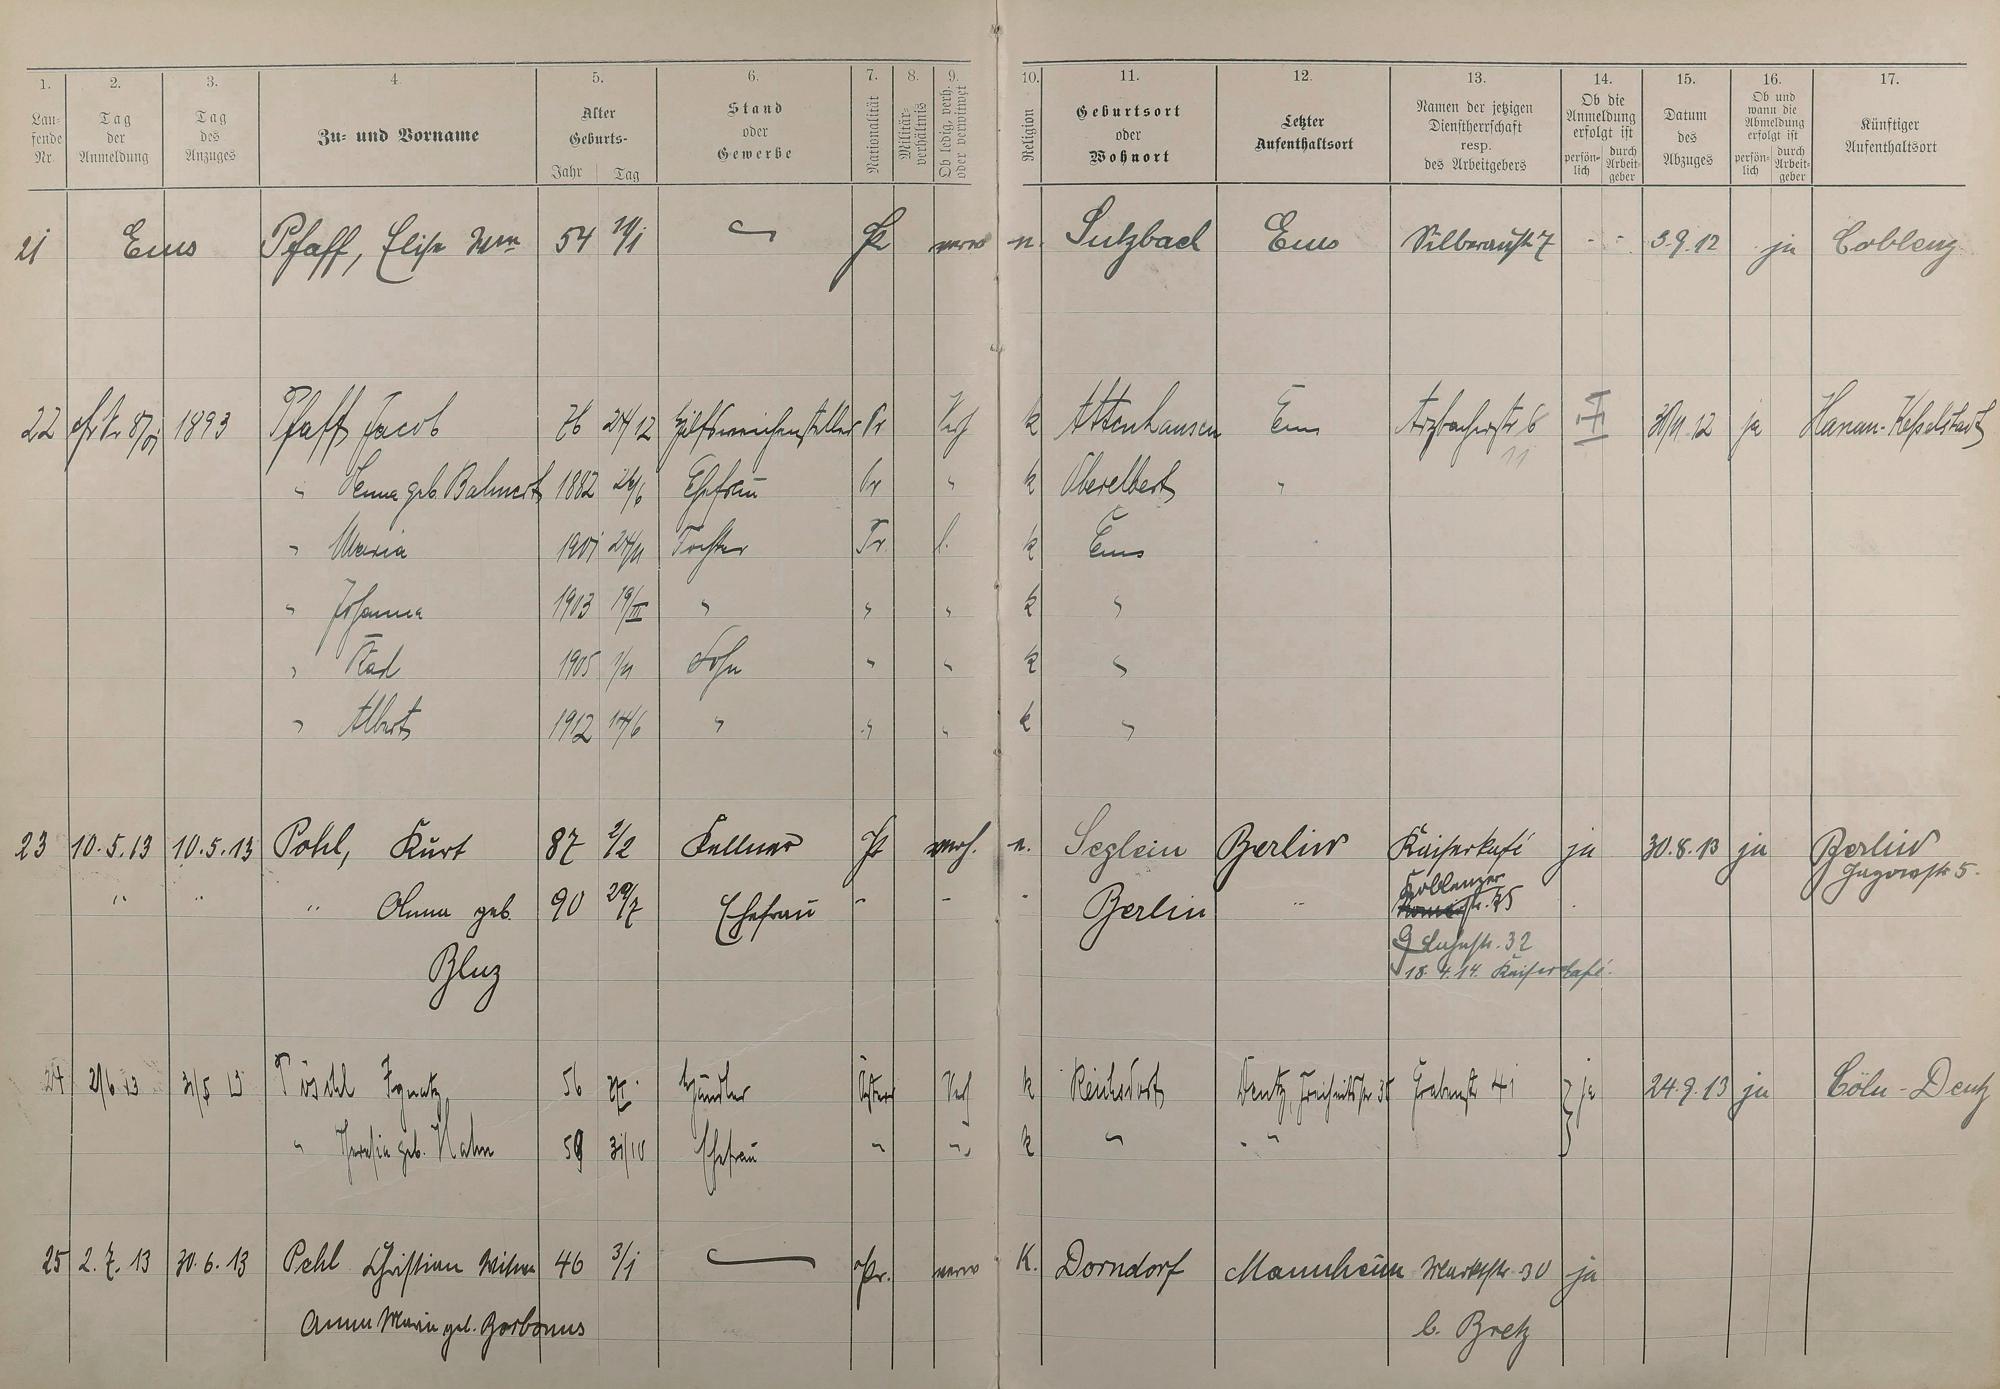 1. 2. 3. 4. 5. 6. 7. 8. 9. 10. 11. 12. 13. 14. 15. 16. 17.
Lau-
fende
Nr.
Tag
der
Anmeldung
Tag
des
Anzuges
Zu- und Vorname
Alter
Geburts-
Jahr Tag
Stand
oder
Gewerbe
Nationalität
Militär-
verhältnis
Ob ledig, verh.
oder verwitwet
Religion
Geburtsort
oder
Wohnort
Letzter
Aufenthaltsort
Namen der jetzigen
Dienstherrschaft
resp.
des Arbeitgebers
Ob die
Anmeldung
erfolgt ist
persön-
lich
durch
Arbeit-
geber
Datum
des
Abzuges
Ob und
wann die
Abmeldung
erfolgt ist
persön-
lich
durch
Arbeit-
geber
Künftiger
Aufenthaltsort
21 Ems Pfaff, Elise 54 Pr verw Sulzbach Ems Silberaustr 7 - - 3.9.12 ja Coblenz
22 1893 Pfaff Jacob 76 24/12 Hilfsweichensteller Pr Verh k Attenhausen Ems Arzbacherstr 6 30/11.12 ja Hanau-Kesselstadt
11
" geb. 1882 26/6 Ehefrau Pr " k Oberelbert "
" Maria 1901 24/11 Tochter Pr. l. k Ems
" Johanna 1903 19/III " " " k "
" Karl 1905 Sohn " " k "
" Albert 1912 14/6 " " " k "
23 10.5.13 10.5.13 Pohl, Kurt 87 2/2 Kellner Pr verh. e. Seglein Berlin Kaiserkafé ja 30.8.13 ja Berlin
Jagowstr 5.
" " " Anna geb. 90 29/7 Ehefrau - - - Berlin " Koblenzer
str. 75
Bluz
Lahnstr. 32
18.4.14. Kaiser Café.
24 2/6 13 31/5 13 Pöschl Ignatz 56 Händler Öster Verh k Reichsdorf Deutz, Freiheitstr 38 Grabenstr 41 } ja 24.9.13 ja Cöln - Deutz
" Theresia geb. Hahn 59 31/10 Ehefrau " " k " "
25 2.7.13 30.6.13 Pehl Christian Witwe 46 3/1 Pr. verw K. Dorndorf Mannheim 30 ja
Anna Maria geb. Borbonus
b. Bretz